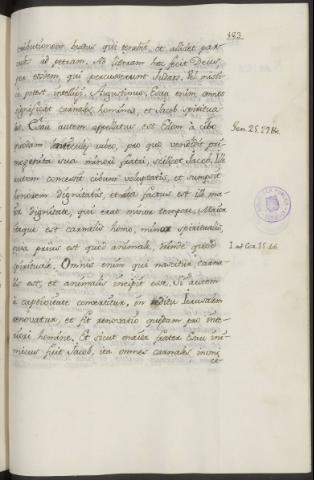 183.
tributionem hujus qui tenebit, et allidet par-
vulos ad petram. Ad literam hoc fecit Deus,
per eosdem qui percusserunt Judæos. Vel mistice
potest intelligi. Augustinus. Esau enim omnes
significat carnales homines, et Jacob spiritua-
les. Esau autem appellatus est Edom a cibo
quodam lenticulæ rubeo, pro quo vendidit pri-
mogenita sua minori fratri, scilicet Jacob. Ille
autem concessit cibum voluptatis, et suscepit
honorem dignitatis, et ita factus est ille ma-
jor dignitate, qui erat minor tempore. Major
itaque est carnalis homo, minor spiritualis,
quia prius est quod animale, deinde quod
spirituale. Omnis enim qui nascitur carna-
lis est, et animalis incipit esse. Si autem
a captivitate convertitur, in reditu Jerusalem
renovatur, et fit renovatio quædam pro inte-
riori homine. Et sicut major frater Esau ini-
micus fuit Jacob, ita omnes carnales inimi
ce
Gen. 25. 27 &c.
I ad Cor. 15. 46.